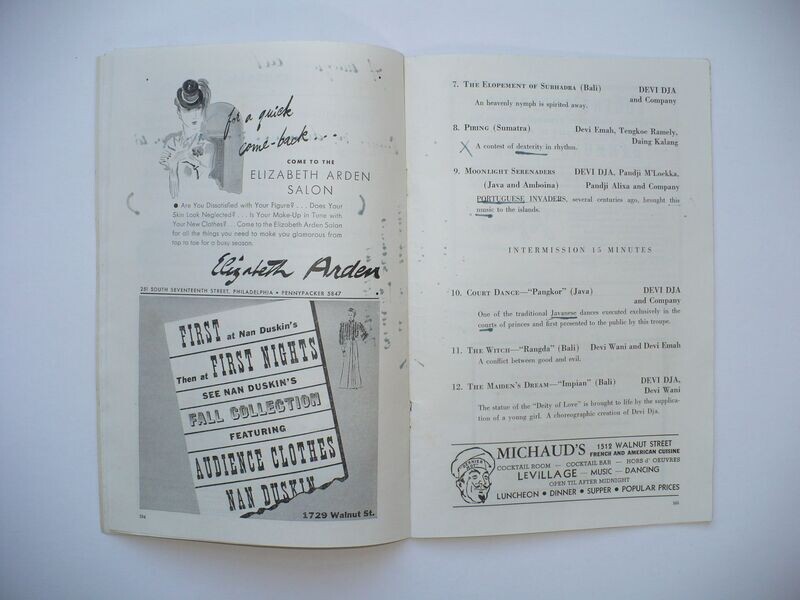 for a quick
come-back...
COME TO THE
ELIZABETH ARDEN
SALON
● Are You Dissatisfied with Your Figure? . . . Does Your
Skin Look Neglected? . . . Is Your Make-Up in Tune with
Your New Clothes? . . . Come to the Elizabeth Arden Salon
for all the things you need to make you glamorous from
top to toe for a busy season.
Elizabeth Arden
251 SOUTH SEVENTEENTH STREET, PHILADELPHIA • PENNYPACKER 5847
FIRST at Nan Duskin's
Then at FIRST NIGHTS
SEE NAN DUSKIN'S
FALL COLLECTION
FEATURING
AUDIENCE CLOTHES
NAN DUSKIN
1729 Walnut St.
7. THE ELOPEMENT OF SUBHADRA (Bali) DEVI DJA
and Company
An heavenly nymph is spirited away.
8. PIRING (Sumatra) Devi Emah, Tengkoe Ramely,
Daing Kalang
X A contest of dexterity in rhythm.
9. MOONLIGHT SERENADERS DEVI DJA, Pandji M'Loekka,
(Java and Amboina) Pandji Alixa and Company
PORTUGUESE INVADERS, several centuries ago, brought this
music to the islands.
INTERMISSION 15 MINUTES
10. COURT DANCE—"Pangkor" (Java) DEVI DJA
and Company
One of the traditional Javanese dances executed exclusively in the
courts of princes and first presented to the public by this troupe.
11. THE WITCH—"Rangda" (Bali) Devi Wani and Devi Emah
A conflict between good and evil.
12. THE MAIDEN'S DREAM—"Impian" (Bali) DEVI DJA,
Devi Wani
The statue of the "Deity of Love" is brought to life by the supplica-
tion of a young girl. A choreographic creation of Devi Dja.
MICHAUD'S 1512 WALNUT STREET
FRENCH AND AMERICAN CUISINE
COCKTAIL ROOM — COCKTAIL BAR — HORS d' OEUVRES
LEVILLAGE — MUSIC — DANCING
OPEN TIL AFTER MIDNIGHT
LUNCHEON • DINNER • SUPPER • POPULAR PRICES